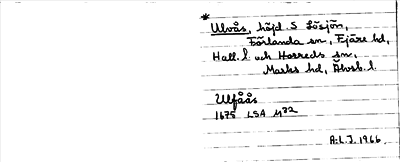 *
Ulvås, höjd S Lösjön,
Förlanda sn, Fjäre hd,
Hall. l. och Horreds sn,
Marks hd, Älvsb. l.
Ulfåås
1675 LSA M32
A.L.J. 1966